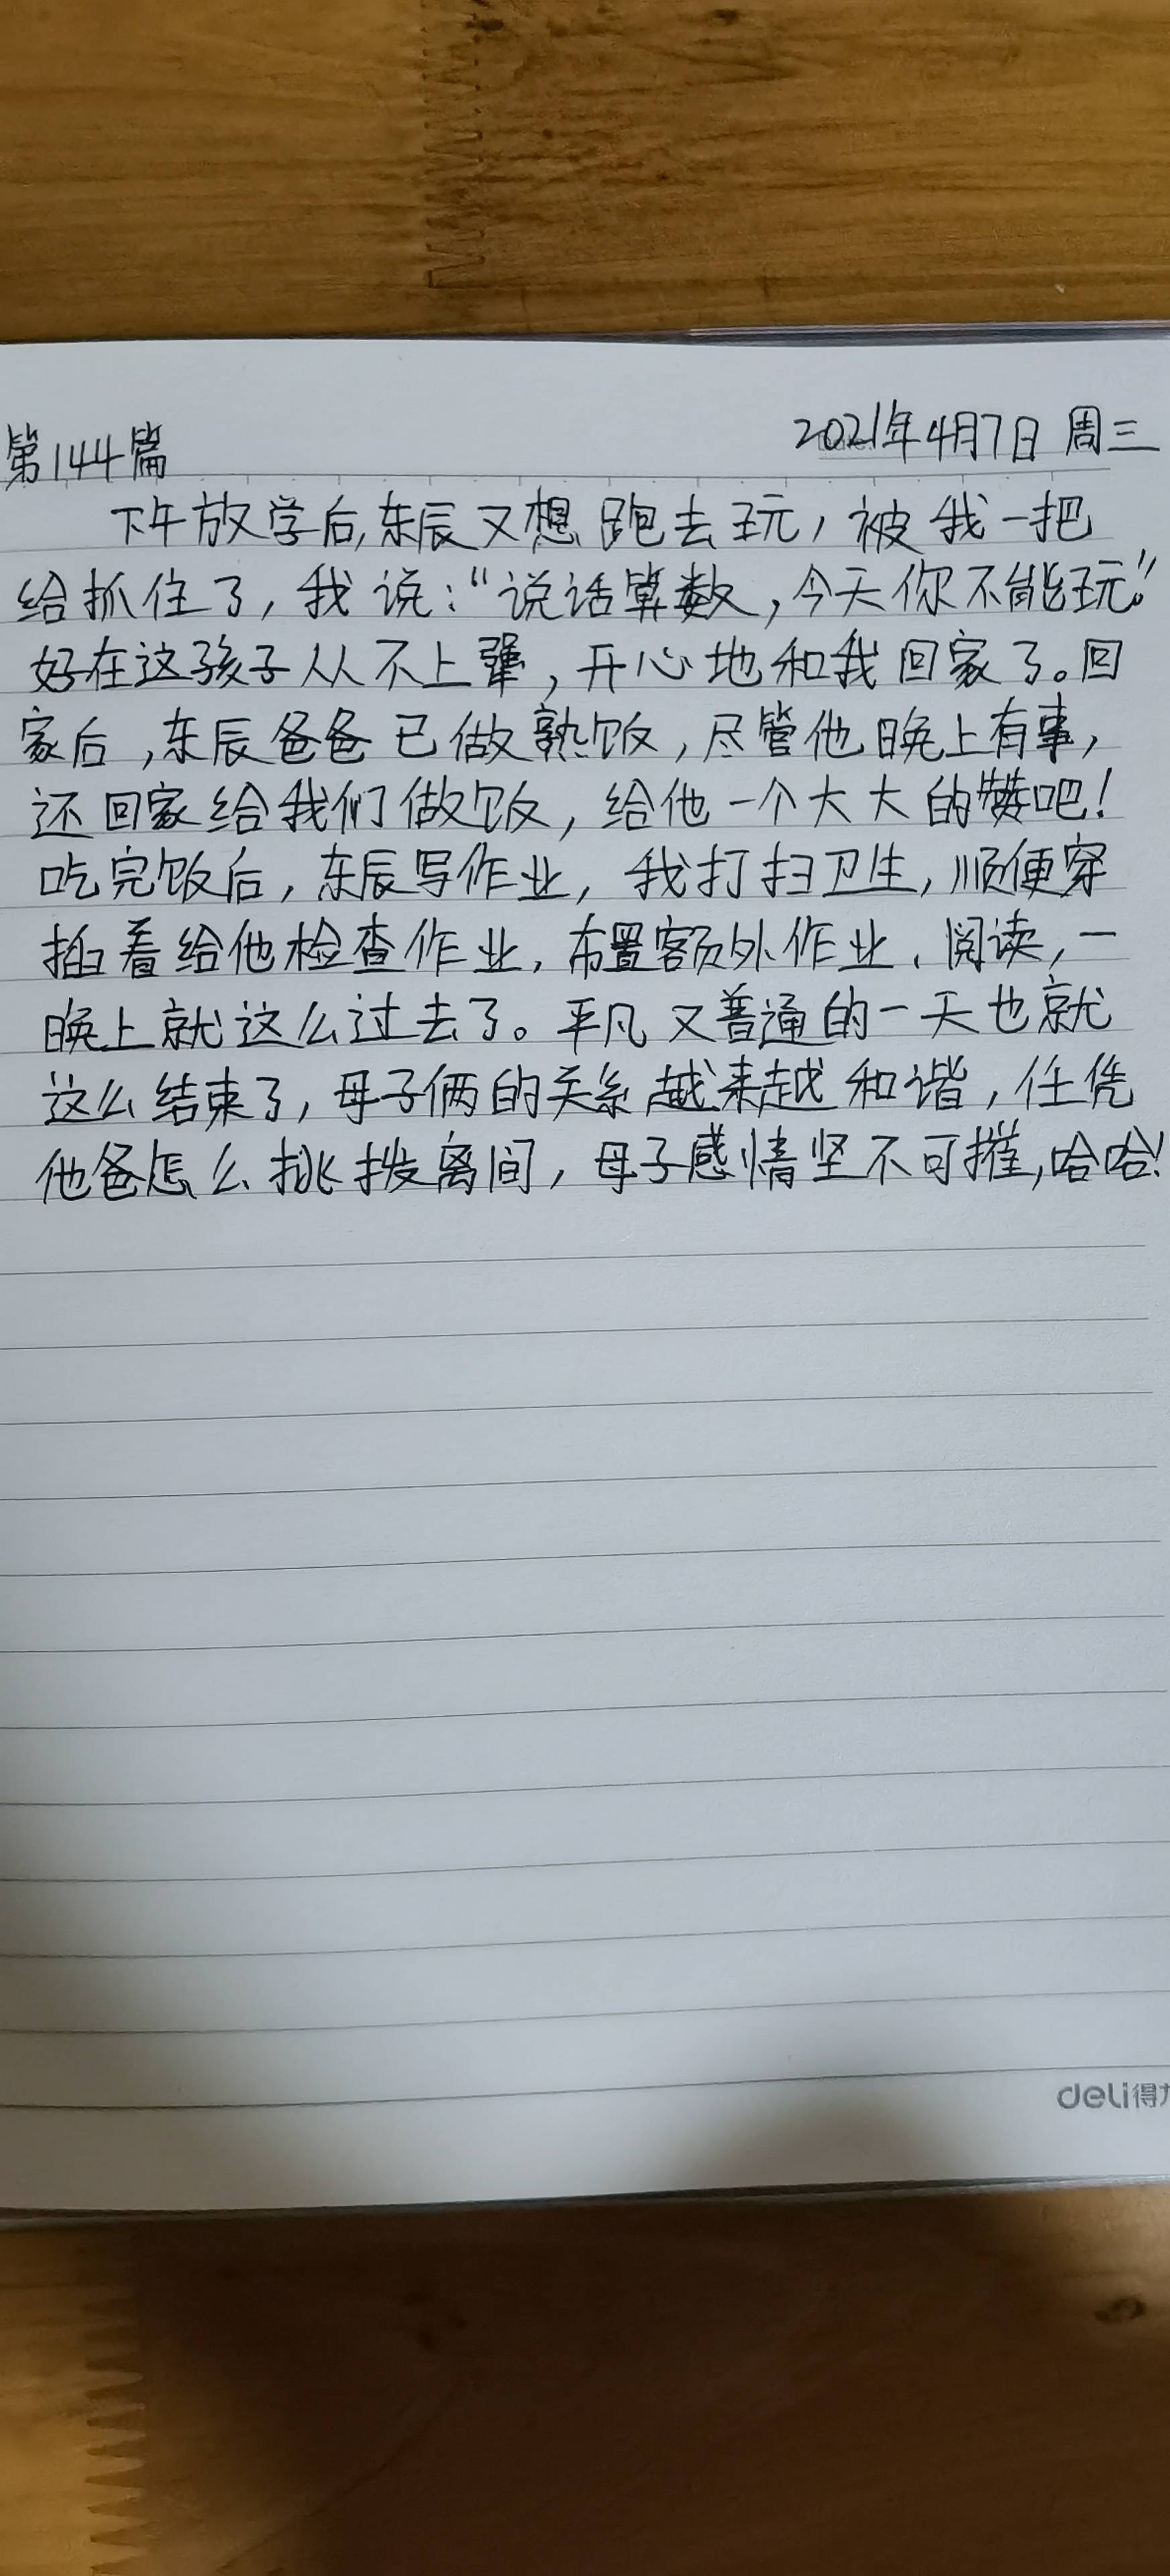 第144篇
2021年4月7日 周三
下午放学后,东辰又想跑去玩,被我一把
给抓住了,我说:“说话算数,今天你不能玩。”
好在这孩子从不上犟,开心地和我回家了。回
家后,东辰爸爸已做熟饭,尽管他晚上有事,
还回家给我们做饭,给他一个大大的赞吧!
吃完饭后,东辰写作业,我打扫卫生,顺便穿
插着给他检查作业,布置额外作业、阅读,一
晚上就这么过去了。平凡又普通的一天也就
这么结束了,母子俩的关系越来越和谐,任凭
他爸怎么挑拨离间,母子感情坚不可摧,哈哈!
deli得力